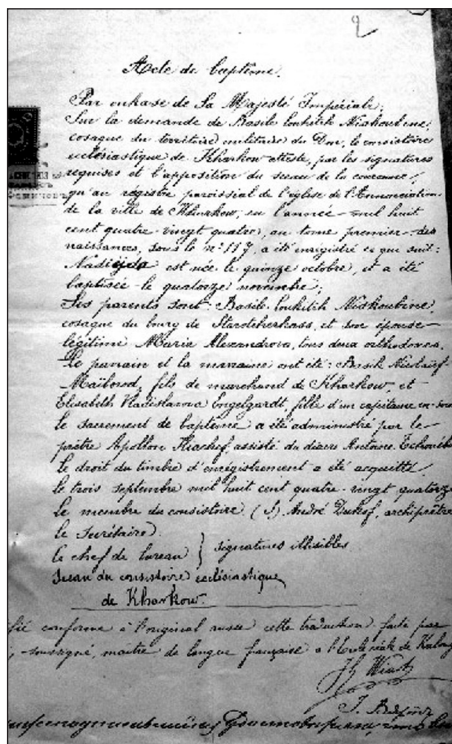 2
Acte de baptême.
Par oukase de Sa Majesté Impériale,
Sur la demande de Basile Loukitch
cosaque du territoire militaire du Don, le consistoire
ecclésiastique de Kharkow atteste, par les signatures
requises et l'apposition du sceau de la couronne,
qu'au registre paroissial de l'église de l'Annonciation
de la ville de Kharkow, en l'année mil huit
cent quatre-vingt quatre, au tome premier des
naissances, sous le n° 117, a été enregistré ce qui suit:
est née le quinze octobre, et a été
baptisée le quatorze novembre;
Ses parents sont: Basile Loukitch
cosaque du bourg de Starotcherkass, et son épouse
légitime Marie Alexandrovna, tous deux orthodoxes.
Le parrain et la marraine ont été: Basile
fils de marchand de Kharkow, et
Elisabeth Vladislavna Engelgardt, fille d'un capitaine en
le sacrement de baptême a été administré par le
prêtre Apollon assisté du diacre Antoine
le droit du timbre d'enregistrement a été acquitté
le trois septembre mil huit cent quatre-vingt quatorze
le membre du consistoire (S) André archiprêtre
le secrétaire
le chef de bureau } signatures illisibles
Sceau du consistoire ecclésiastique
de Kharkow.
conforme à l'original russe cette traduction faite par
soussigné, maître de langue française à